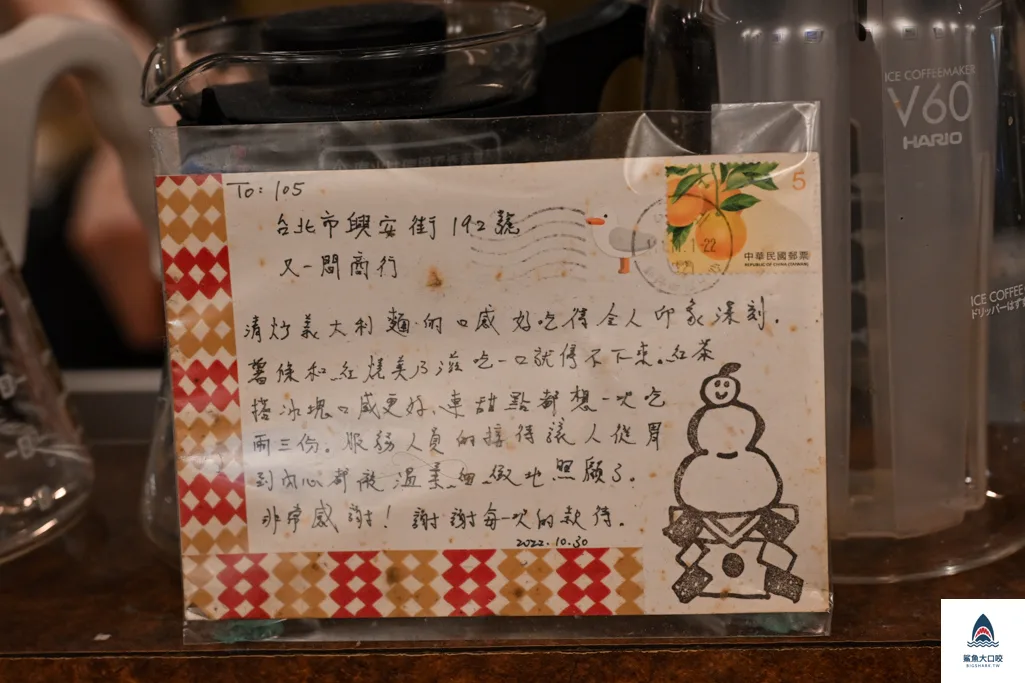 TO: 105
台北市興安街192號
又一間商行
5
中華民國郵票
REPUBLIC OF CHINA (TAIWAN)
清炒義大利麵的口感好吃得令人印象深刻.
薯條和紅燒美乃滋吃一口就停不下來。紅茶
搭冰塊口感更好,連甜點都想一次吃
兩三份。服務人員的接待讓人從胃
到內心都被溫柔細緻地照顧了。
非常感謝!謝謝每一次的款待.
2022.10.30
ICE COFFEEMAKER
V60
HARIO
ICE COFFEE
ドリッパーはず
鯊魚大口咬
BIGSHARK.TW